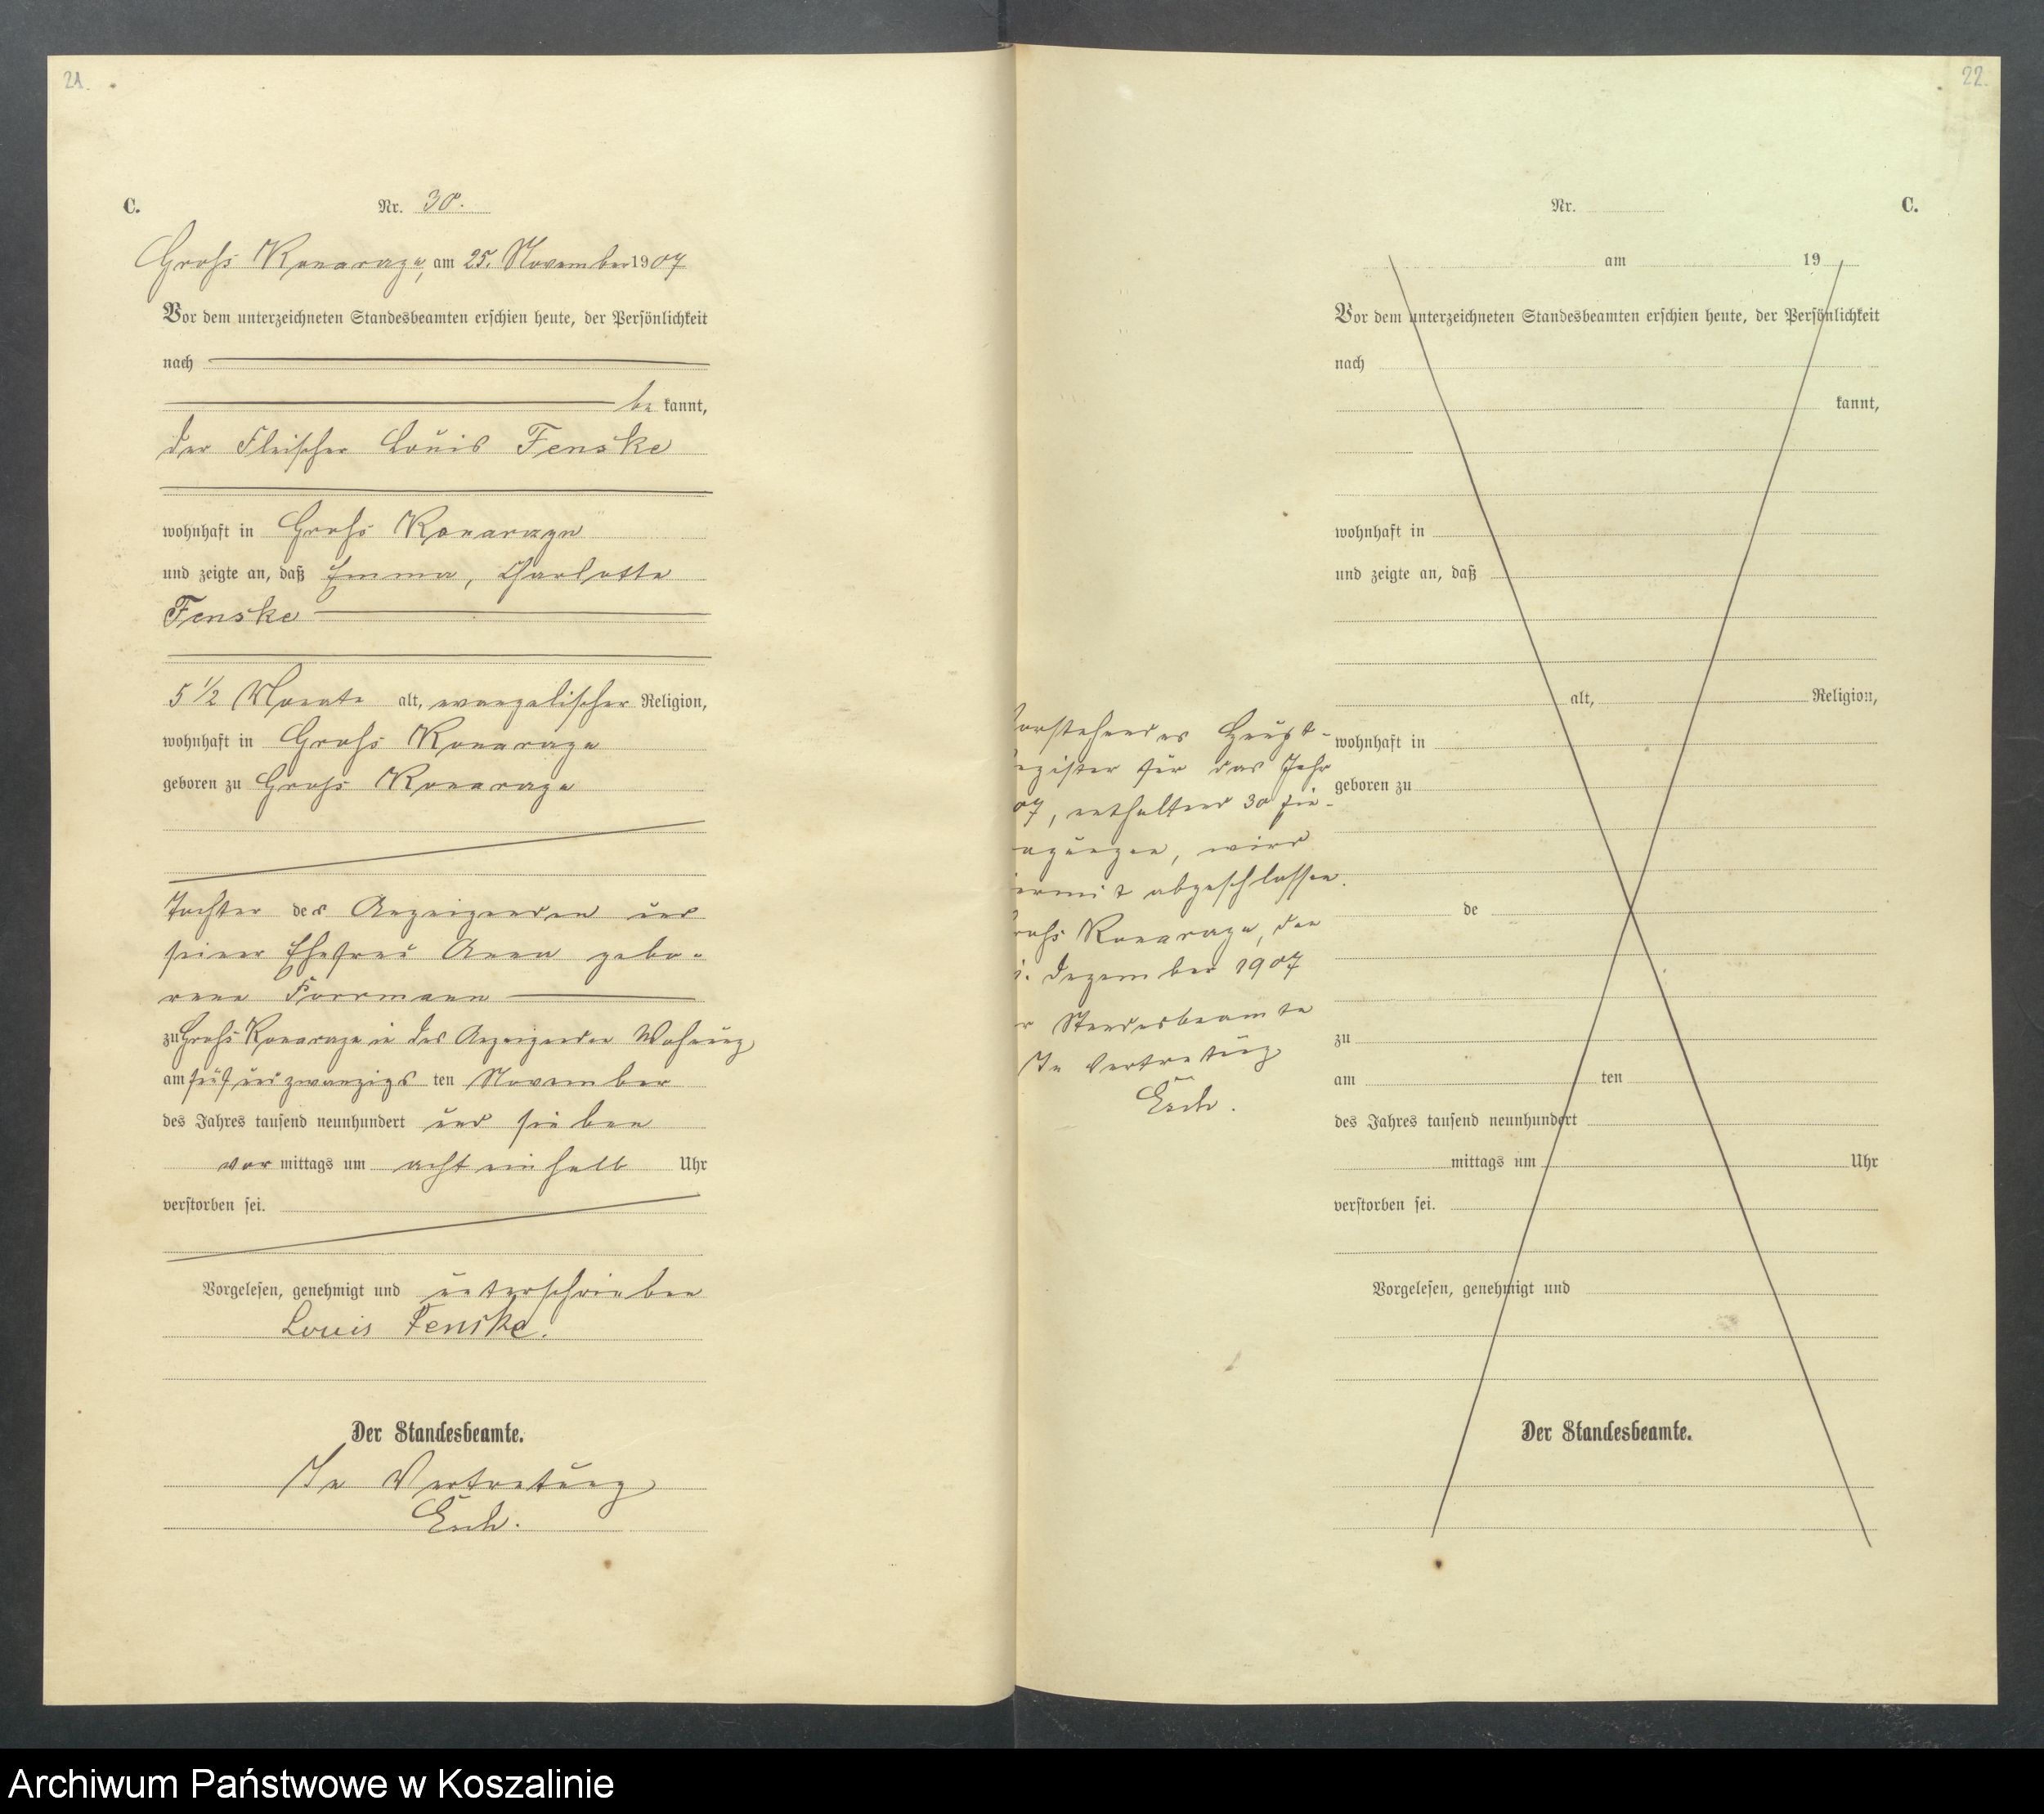 21.
C.
Nr. 30.
Groß Konarzyn, am 25. November 1907
Vor dem unterzeichneten Standesbeamten erschien heute, der Persönlichkeit
nach
be kannt,
der Fleischer Louis Fenske
wohnhaft in Groß Konarzyn
und zeigte an, daß Emma, Charlotte
Fenske
5 1/2 Monate alt, evangelischer Religion,
wohnhaft in Groß
geboren zu Groß
Tochter des Anzeigenden und
seiner Ehefrau Anna gebo-
rene
zu Groß in des Anzeigenden Wohnung
am fünfundzwanzigsten November
des Jahres tausend neunhundert und sieben
vor mittags um acht einhalb Uhr
verstorben sei.
Vorgelesen, genehmigt und unterschrieben
Louis Fenske.
Der Standesbeamte.
In Vertretung
22.
Nr.
C.
am 19
Vor dem unterzeichneten Standesbeamten erschien heute, der Persönlichkeit
nach
kannt,
wohnhaft in
und zeigte an, daß
alt, Religion,
wohnhaft in
geboren zu
de
zu
am ten
des Jahres tausend neunhundert
mittags um Uhr
verstorben sei.
Vorgelesen, genehmigt und
Der Standesbeamte.
orstehendes Haupt-
egister für das Jahr
07, enthaltend 30 Ein-
agungen, wird
iermit abgeschlossen.
roß den
Dezember 1907
r Standesbeamte
In Vertretung
Archiwum Państwowe w Koszalinie